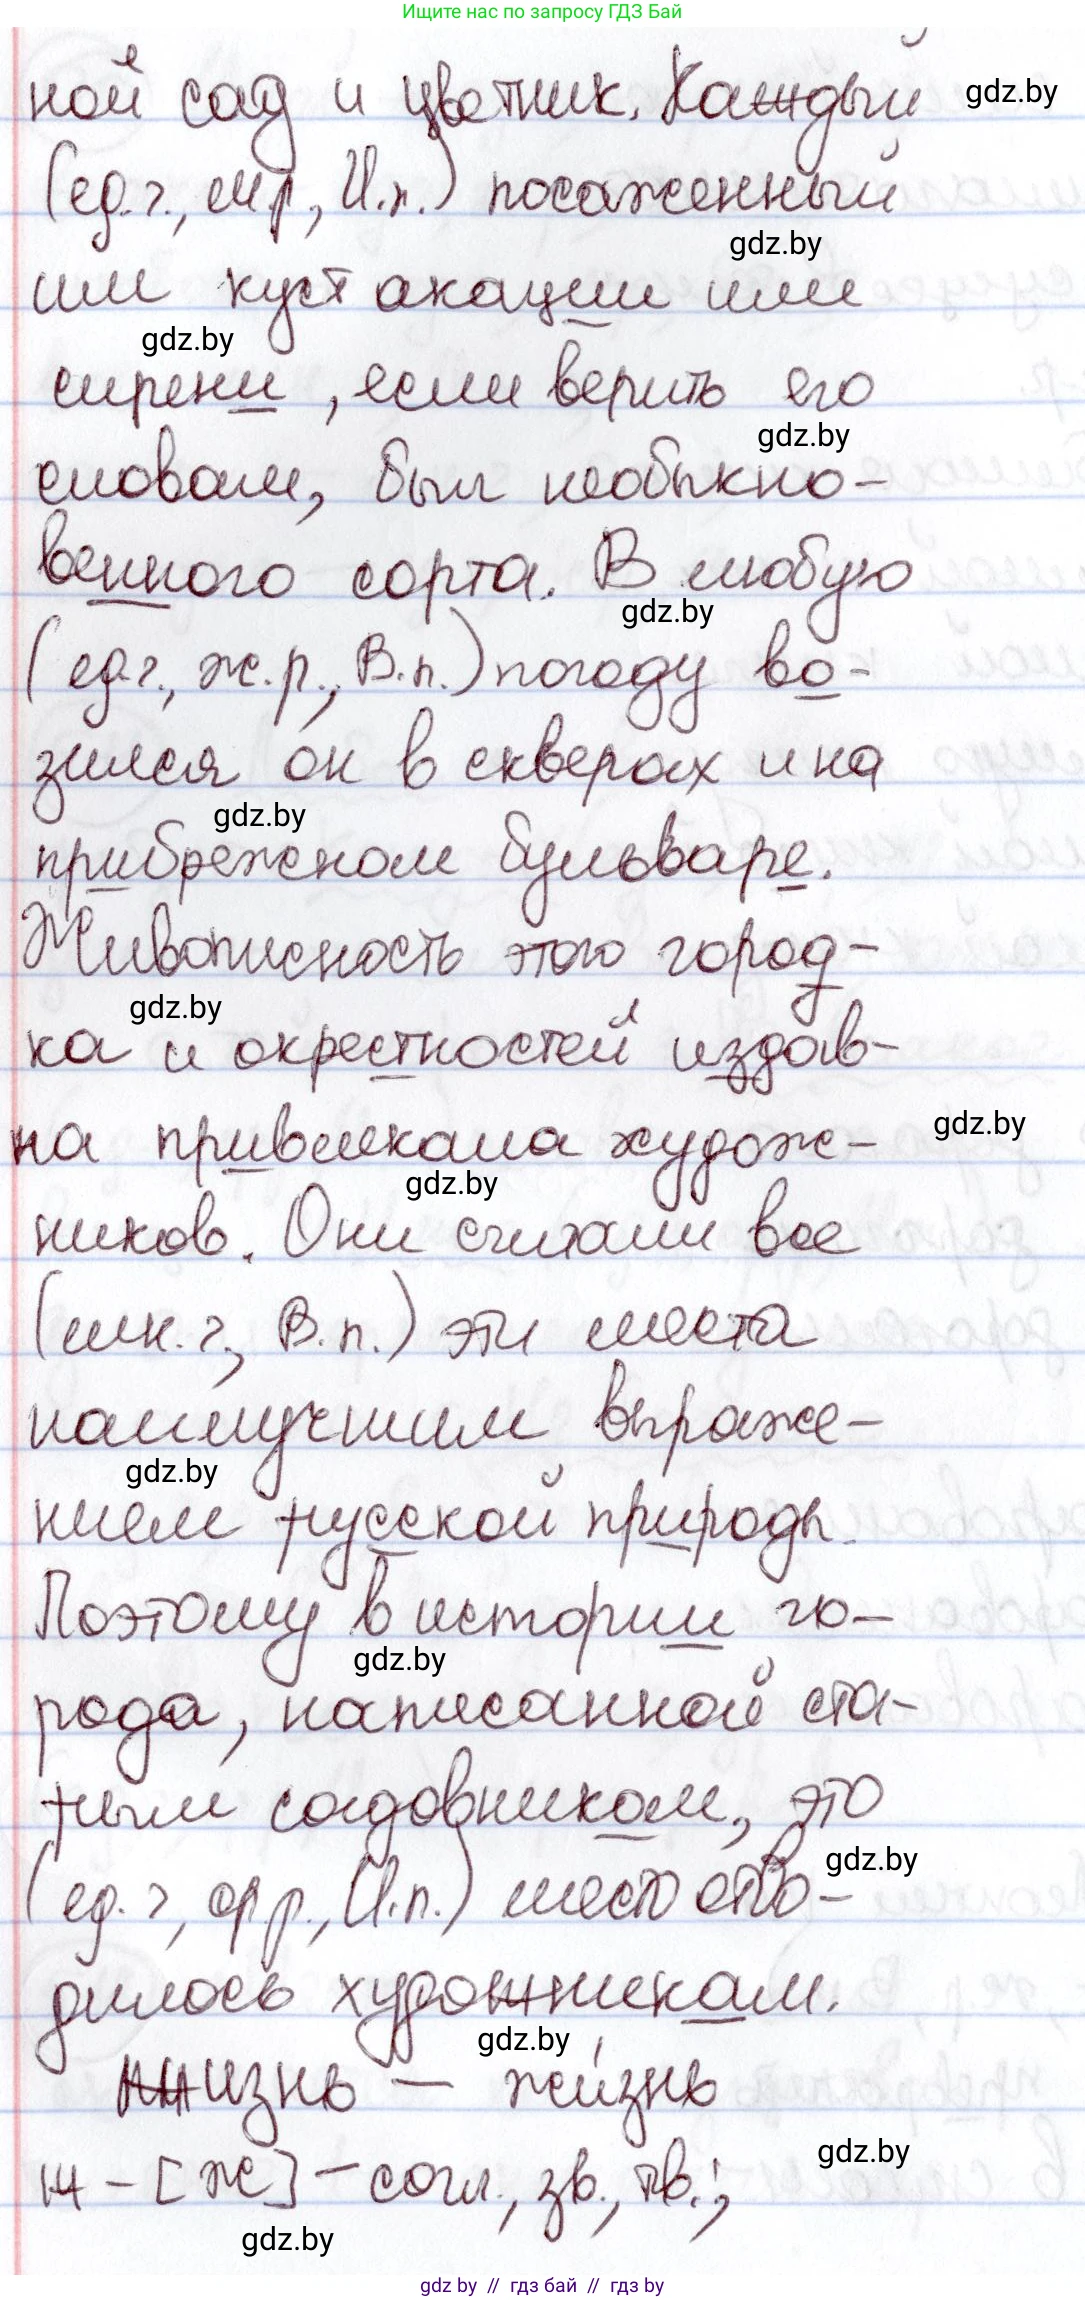 Ищите нас по запросу ГДЗ Бай
ной сад и цветник. Каждый gdz.by
(ед.ч., м.р., И.п.) посаженный
gdz.by
им куст акации или
gdz.by
сирени, если верить его
gdz.by
словам, был необыкно-
венного сорта. В любую
gdz.by
(ед.ч., ж.р., В.п.) погоду во-
зился он в скверах и на
gdz.by
прибрежном бульваре.
Живописность этого город-
gdz.by
ка и окрестностей издав-
на привлекала худож- gdz.by
gdz.by
ников. Они считали все
(мн.ч., В.п.) эти места
наилучшим выраже-
gdz.by
нием русской природы.
Поэтому в истории го-
gdz.by
рода, написанной ста-
рым садовником, это
gdz.by
(ед.ч., ср.р., И.п.) место отво-
дилось художникам.
gdz.by
жизнь – жи́знь
gdz.by
ж – [ж] – согл., зв., тв.;
gdz.by
gdz by // гдз бай // гдз by